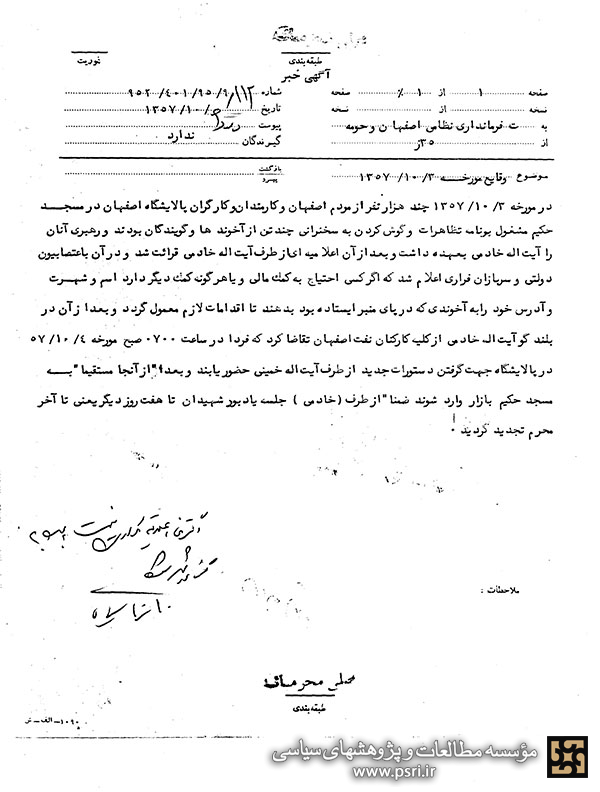 طبقه‌بندی
فوریت
آگهی خبر
صفحه ۱ از ۱٪ صفحه
شماره
نسخه از نسخه
تاریخ ۱۳۵۷/۱۰/
به ت فرمانداری نظامی اصفهان وحومه
پیوست ندارد
از ۳۵ز
گیرندگان
بازگشت
پیرو
موضوع وقایع مورخه ۱۳۵۷/۱۰/۳
در مورخه ۱۳۵۷/۱۰/۳ چند هزار نفر از مردم اصفهان وکارمندان وکارگران پالایشگاه اصفهان در مسجد
حکیم مشغول بودنه تظاهرات وگوش کردن به سخنرانی چند تن از آخوند ها وگویندگان بودند و رهبری آنان
را آیت اله خادمی بعهده داشت وبعد از آن اعلامیه ای از طرف آیت اله خادمی قرائت شد و در آن باعتصابیون
دولتی و سربازان فراری اعلام شد که اگر کسی احتیاج به کمک مالی و یا هرگونه کمک دیگر دارد اسم و شهرت
و آدرس خود را به آخوندی که در پای منبر ایستاده بود بدهند تا اقدامات لازم معمول گردد و بعد از آن در
بلند گو آیت اله خادمی از کلیه کارکنان نفت اصفهان تقاضا کرد که فردا در ساعت ۰۷۰۰ صبح مورخه ۵۷/۱۰/۴
در پالایشگاه جهت گرفتن دستورات جدید از طرف آیت اله خمینی حضور یابند و بعد از آنجا مستقیما" بــه
مسجد حکیم بازار وارد شوند ضمنا" از طرف (خادمی) جلسه یاد بود شهیدان تا هفت روز دیگر یعنی تا آخر
محرم تجدید گردید.
ملاحظات :
خیلی محرمانه
طبقه‌بندی
۱۰۶۰-الف-ش
مؤسسه مطالعات و پژوهشهای سیاسی
www.psri.ir